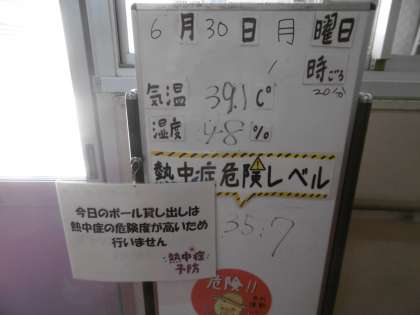 6月30日月曜日
1時ごろ
20分
気温 39.1℃
湿度 48%
熱中症危険レベル
35.7
今日のボール貸し出しは
熱中症の危険度が高いため
行いません
熱中症
予防
危険!!